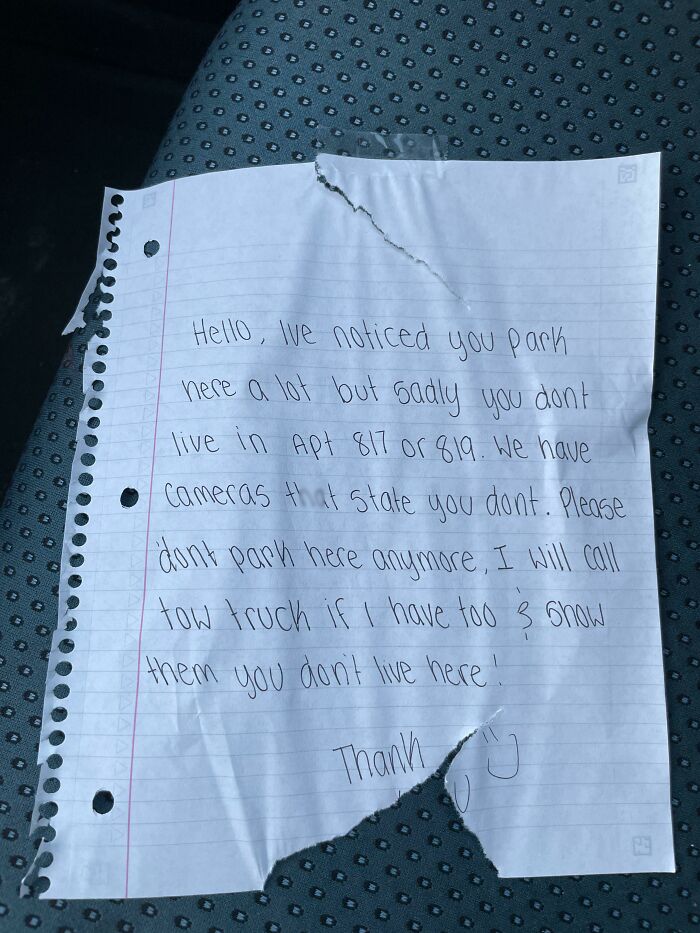 Hello, Ive noticed you park
here a lot but sadly you dont
live in Apt 817 or 819. We have
cameras that state you dont. Please
dont park here anymore, I will call
tow truck if I have too & show
them you don't live here!
Thank